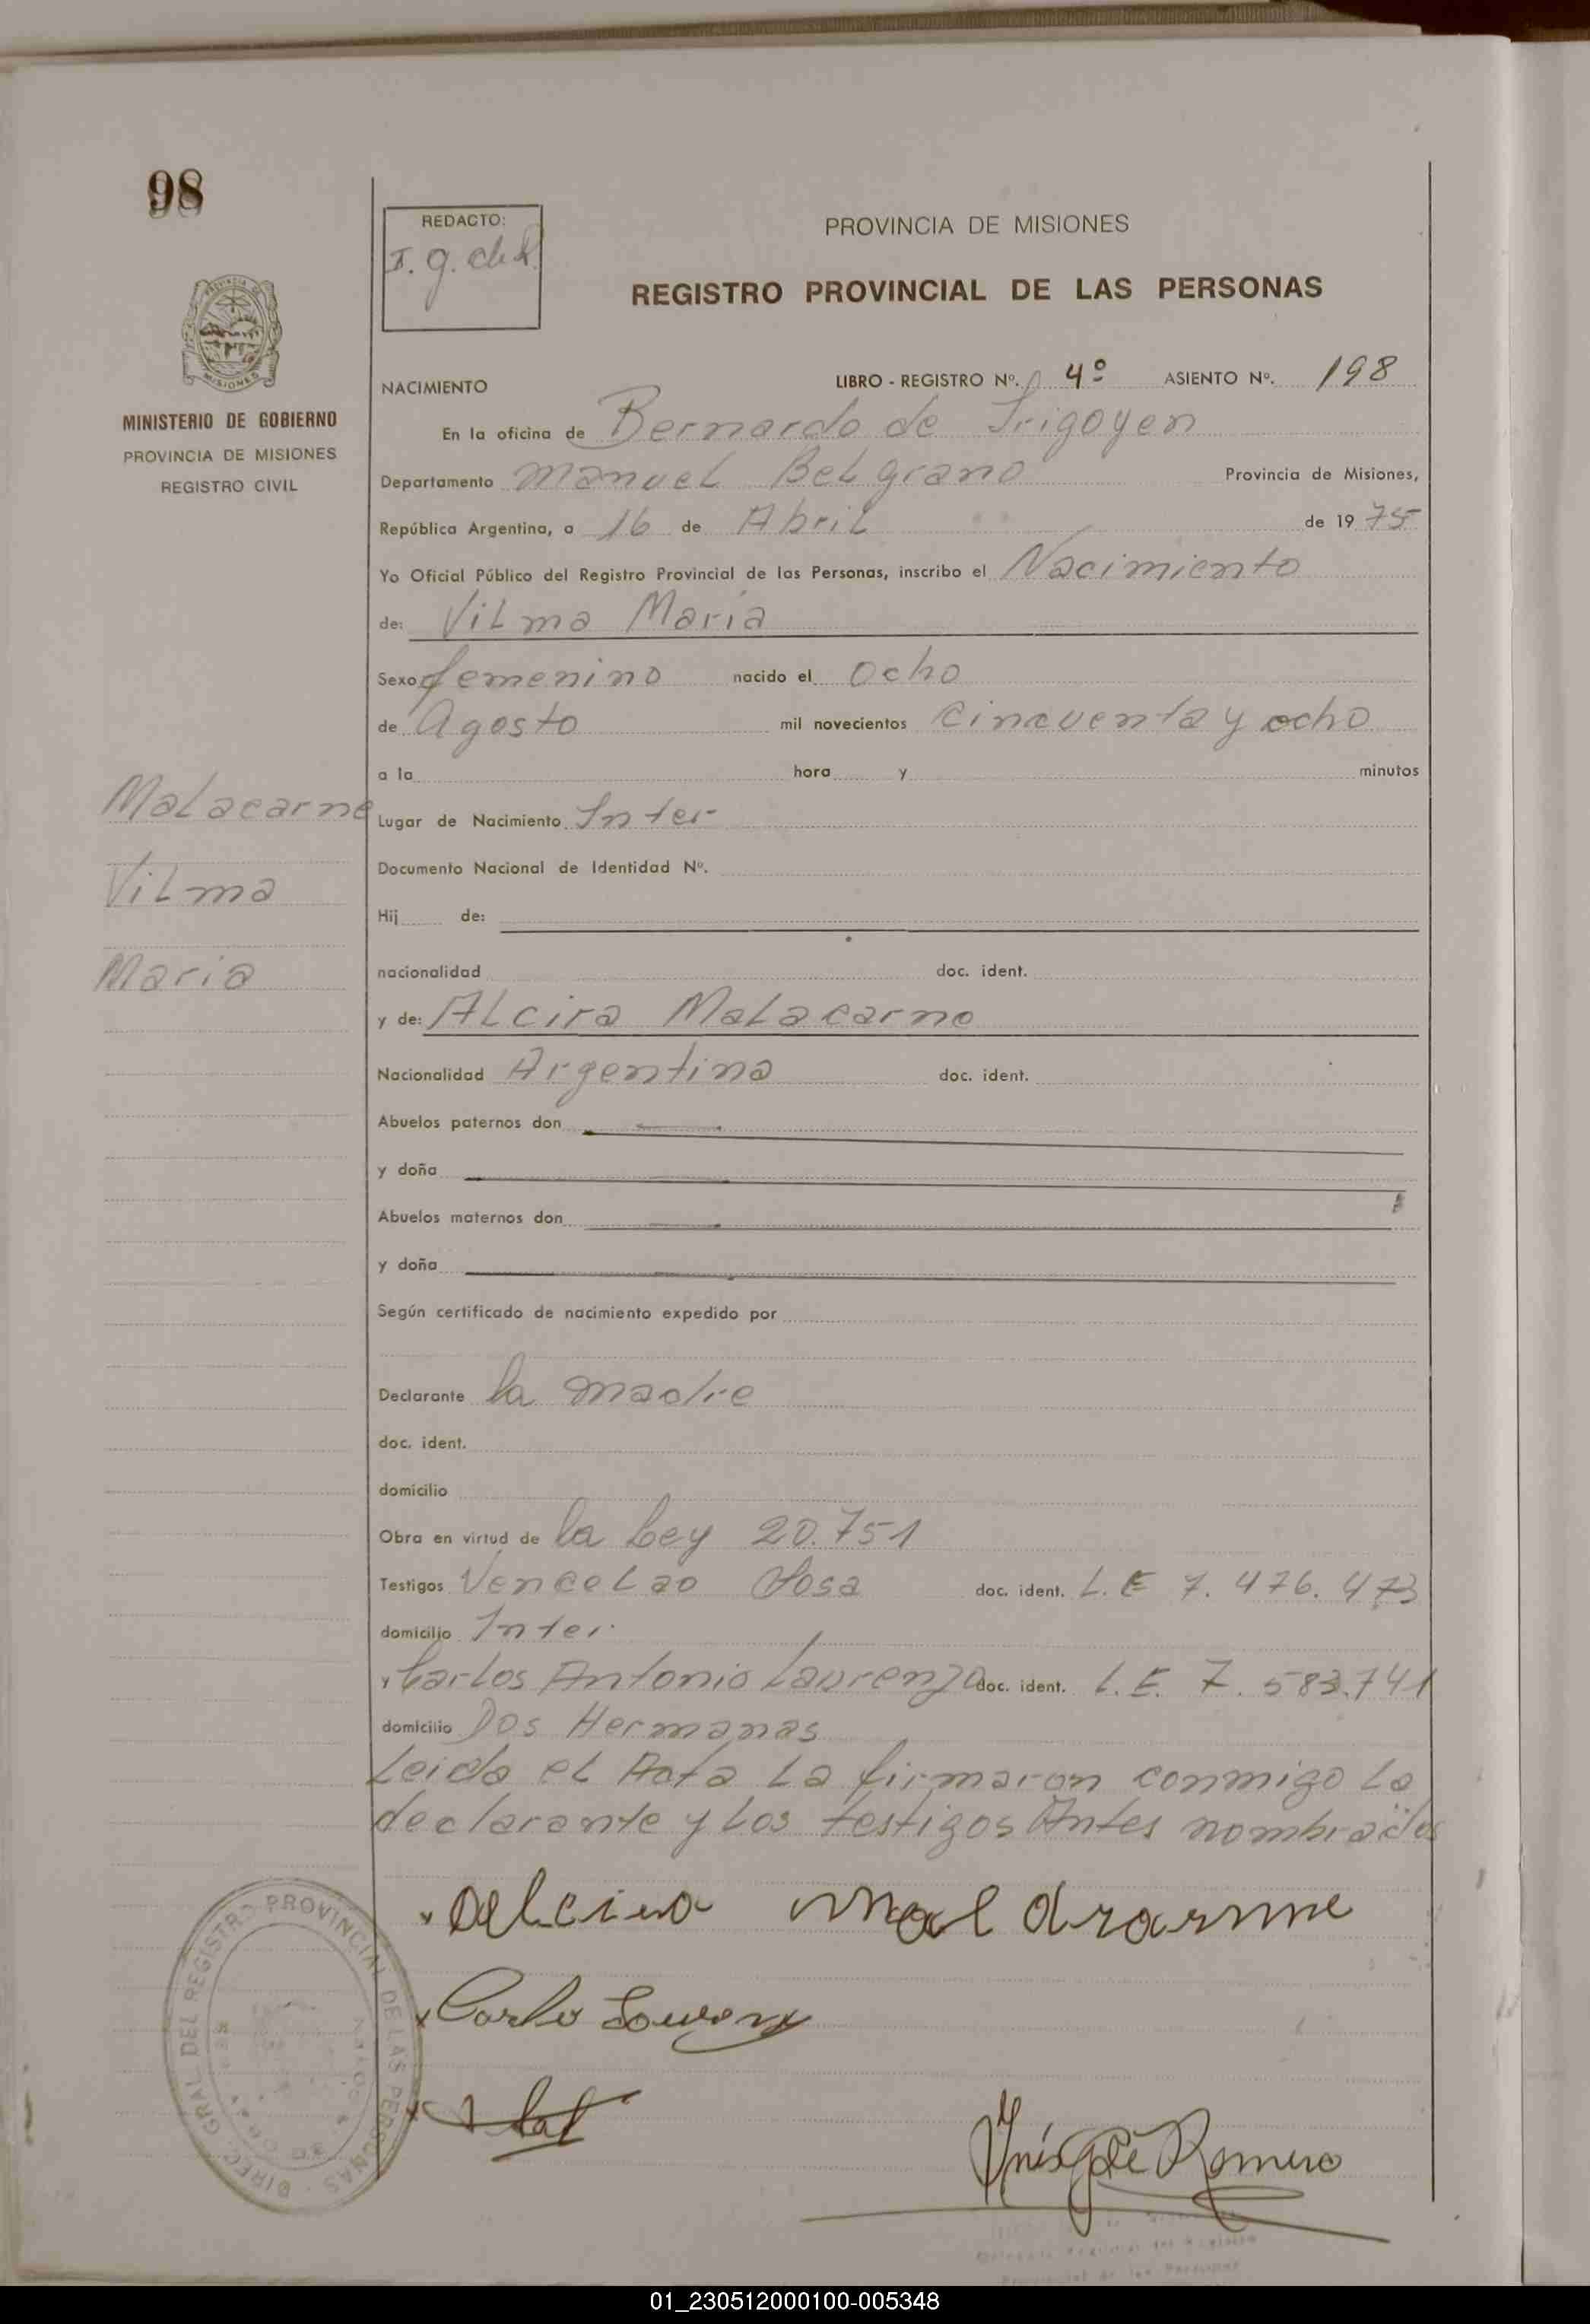 98
REDACTO:
I. g. de R.
PROVINCIA DE MISIONES
REGISTRO PROVINCIAL DE LAS PERSONAS
MISIONES
MINISTERIO DE GOBIERNO
PROVINCIA DE MISIONES
REGISTRO CIVIL
NACIMIENTO LIBRO - REGISTRO Nº. 4º ASIENTO Nº. 198
En la oficina de Bernardo de Irigoyen
Departamento Manuel Belgrano Provincia de Misiones,
República Argentina, a 16 de Abril de 1975
Yo Oficial Público del Registro Provincial de las Personas, inscribo el Nacimiento
de: Vilma María
Sexo femenino nacido el ocho
de Agosto mil novecientos cincuenta y ocho
a la hora y minutos
Malacarne
Vilma
Maria
Lugar de Nacimiento Inter
Documento Nacional de Identidad Nº.
Hij de:
nacionalidad doc. ident.
y de: Alcira Malacarne
Nacionalidad Argentina doc. ident.
Abuelos paternos don
y doña
Abuelos maternos don
y doña
Según certificado de nacimiento expedido por
Declarante la madre
doc. ident.
domicilio
Obra en virtud de la Ley 20.751
Testigos Vencelao Sosa doc. ident. L.E 7.476.473
domicilio Inter
y Carlos Antonio Laurenzo doc. ident. L.E. 7.583.741
domicilio Dos Hermanas
Leida el Acta la firmaron conmigo la
declarante y los testigos Antes nombrados
x Delcira
x Carlo
Inés G de Romero
DIREC. GRAL DEL REGISTRO PROVINCIAL DE LAS PERSONAS
01_230512000100-005348